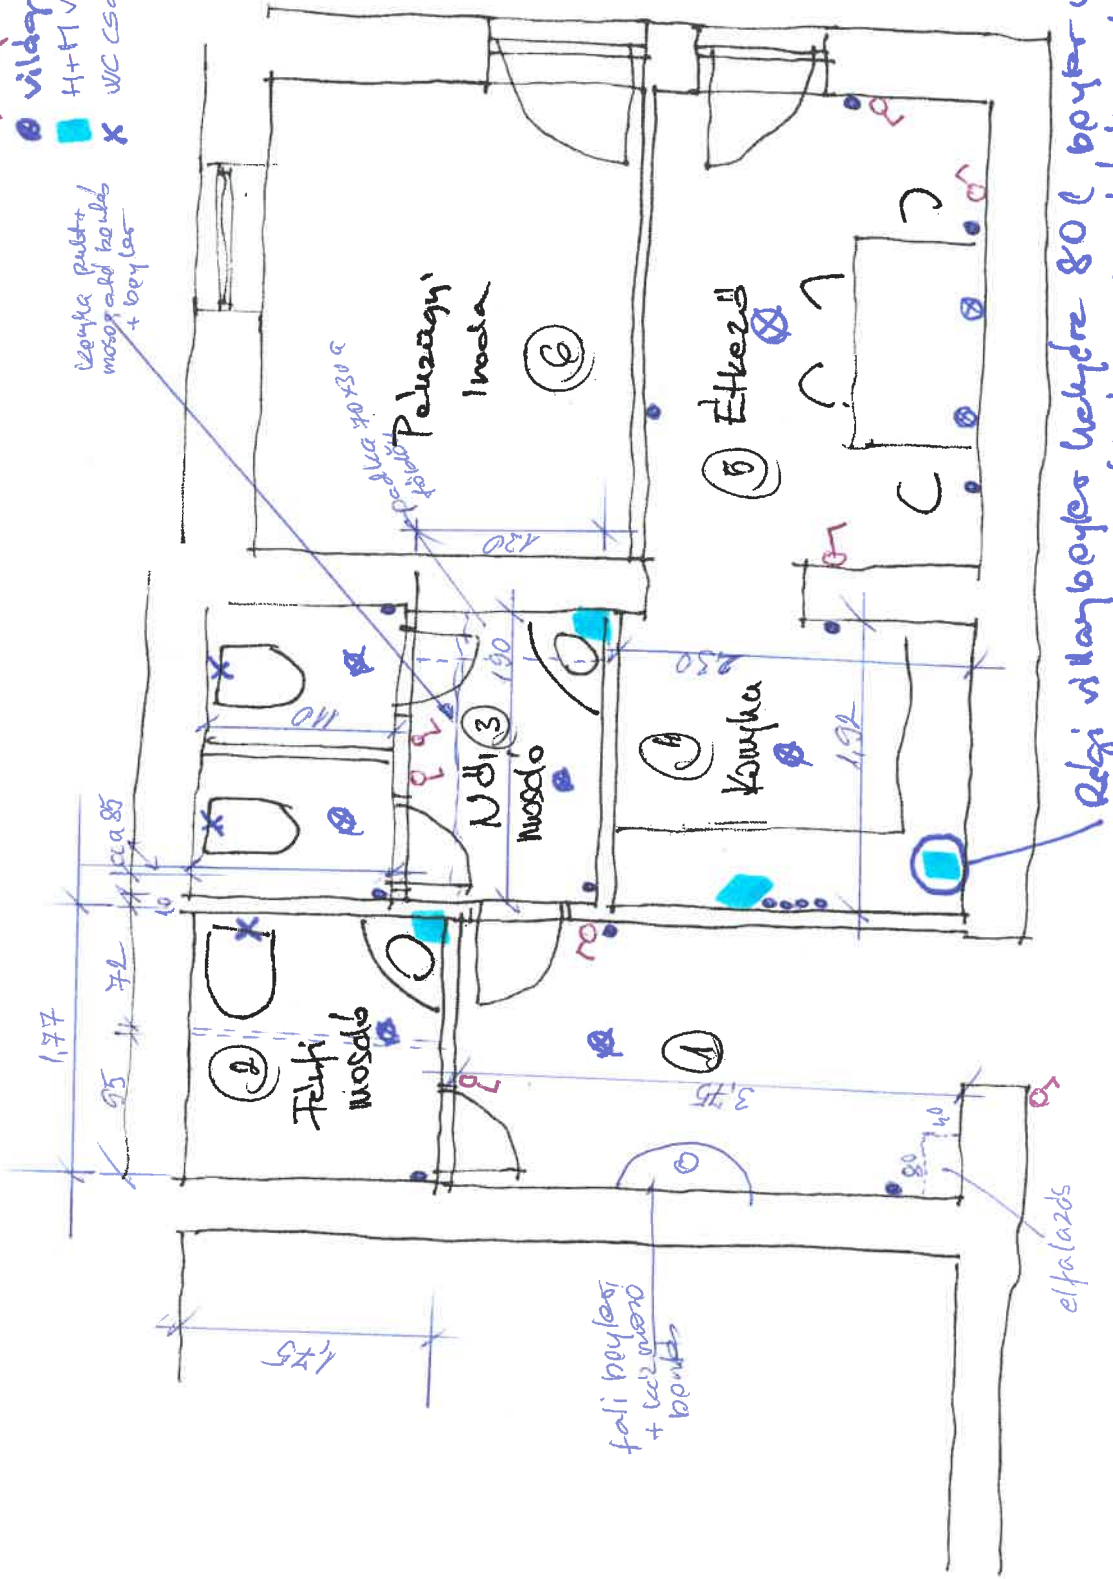 világ
H+M v
x WC csa
konyha pult +
mosogató bontás
+ boyler
padka 70x30 a
földön
Pénzügyi
Iroda
6
120
5 Étkező
4
Konyha
2,30
1,92
Női 3
mosdó
190
110
cca 85
10
72
95
1,77
2
Férfi
mosdó
1
3,75
80
40
elfalazás
1,75
fali boyler,
+ kézmosó
bontás
Régi villanyboyler helyére 80 l boyler